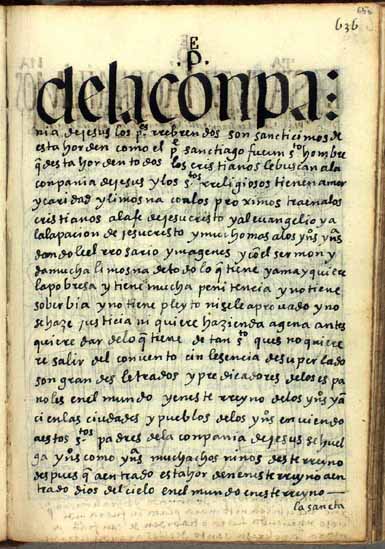 656
636
E
.p.
delaconpa:
nia de jesus los p.es rrebrendos son sancticimos de
esta horden como el p.e sanctiago fue un s.to hombre
q̃ desta horden todos los cristianos le buscan a la
conpania de jesus y los s.tos rreligiosos tienen amor
y caridad y limosna con los proximos traenalos
cristianos a la fe de jesucristo y al evangelio y a
la lapacion de jesucristo y mucho mas a los yn.os yn.as
dandole el rrosario y magenes y cō el sermon y
da mucha limosna de todo lo q̃ tiene y ama y quiere
la pobresa y tiene mucha penitencia y no tiene
soberbia y no tiene pleyto ni sele a provado y no
se haze justicia ni quiere hazienda agena antes
quiere dar de lo q̃ tiene de tan s.to ques no quiere
re salir del convento cin lesencia de su perlado
son grandes letrados y predicadores de los espa
noles en el mundo y en este rreyno de los yn.os y ha
ci en las ciudades y pueblos de los yn.os en viendo
a estos s.tos padres de la conpania de jesus se huel
ga yn.os como yn.as muchachos ninos deste rreyno
despues q̃ a entrado esta horden en este rreyno a en
trado dios del cielo en el mundo en este rreyno —
la sancta